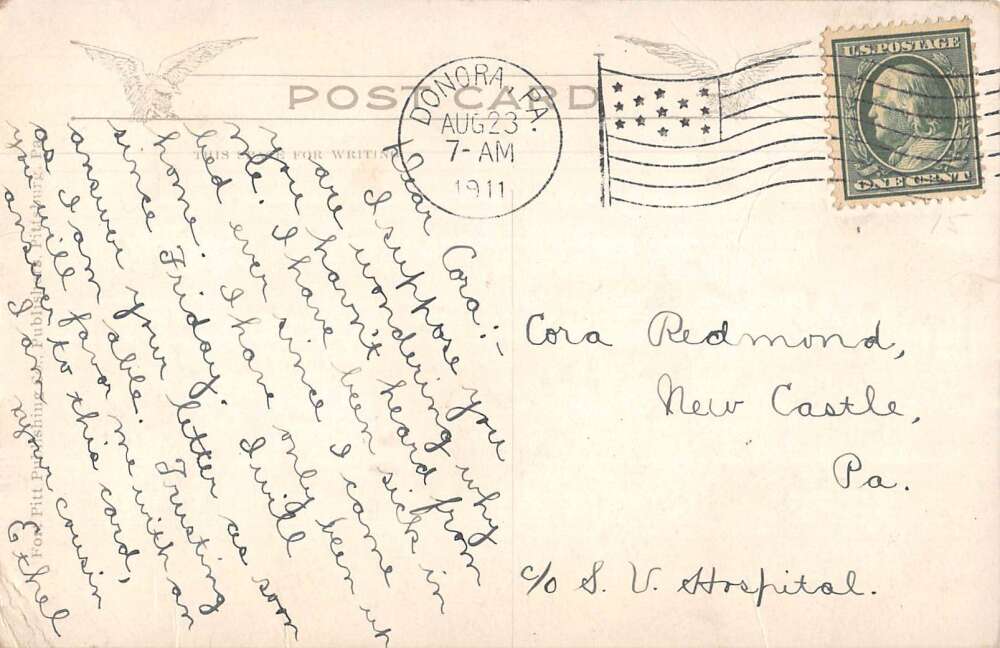 POST CARD
THIS SPACE FOR WRITING
DONORA, PA.
AUG 23
7-AM
1911
U.S. POSTAGE
ONE CENT
Dear Cora:-
I suppose you
are wondering why
you havn't heard from
me. I have been sick in
bed ever since I came
home. I have only been up
since Friday. I will
answer your letter as soon
as I am able. Trusting
you will favor me with an
answer to this card,
I am your cousin
Ethel
Cora Redmond,
New Castle,
Pa.
c/o S. V. Hospital.
Fort Pitt Publishing Co., Publishers, Pittsburg, Pa.